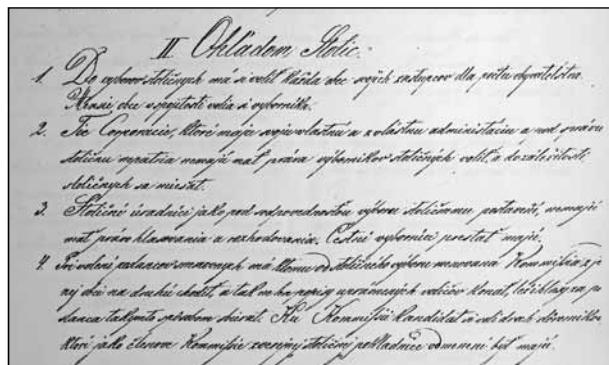 II Ohľadom Stolíc.
1. Do výborov stoličných má si voliť každá obec svojich zastupcov dla počtu obyvateľstva.
Menšie obce v spojitosti volia si výborníka.
2. Tie Corporacie, ktoré majú svoju vlastnú a zvláštnu administráciu, a pod správu
stoličnu nepatria nemajú mať práva výborníkov stoličných voliť, a do záležitostí
stoličných sa miešať.
3. Stoliční úradníci jako pod zodpovednosťou výboru stoličnemu postavení, nemajú
mať právo hlasovania a rozhodovania. Čestní výborníci prestať majú.
4. Pri volení má ktomu od stoličného výboru menovaná Kommissia z je
nej obci na druhú chodiť, a tak voličov
takýmto spôsobom sbierať. Ku Kommissii kandidat si volí dvoch dôverníkov
ktorí jako členovia Kommissie stoličnej pokladnice odmenení byť majú.